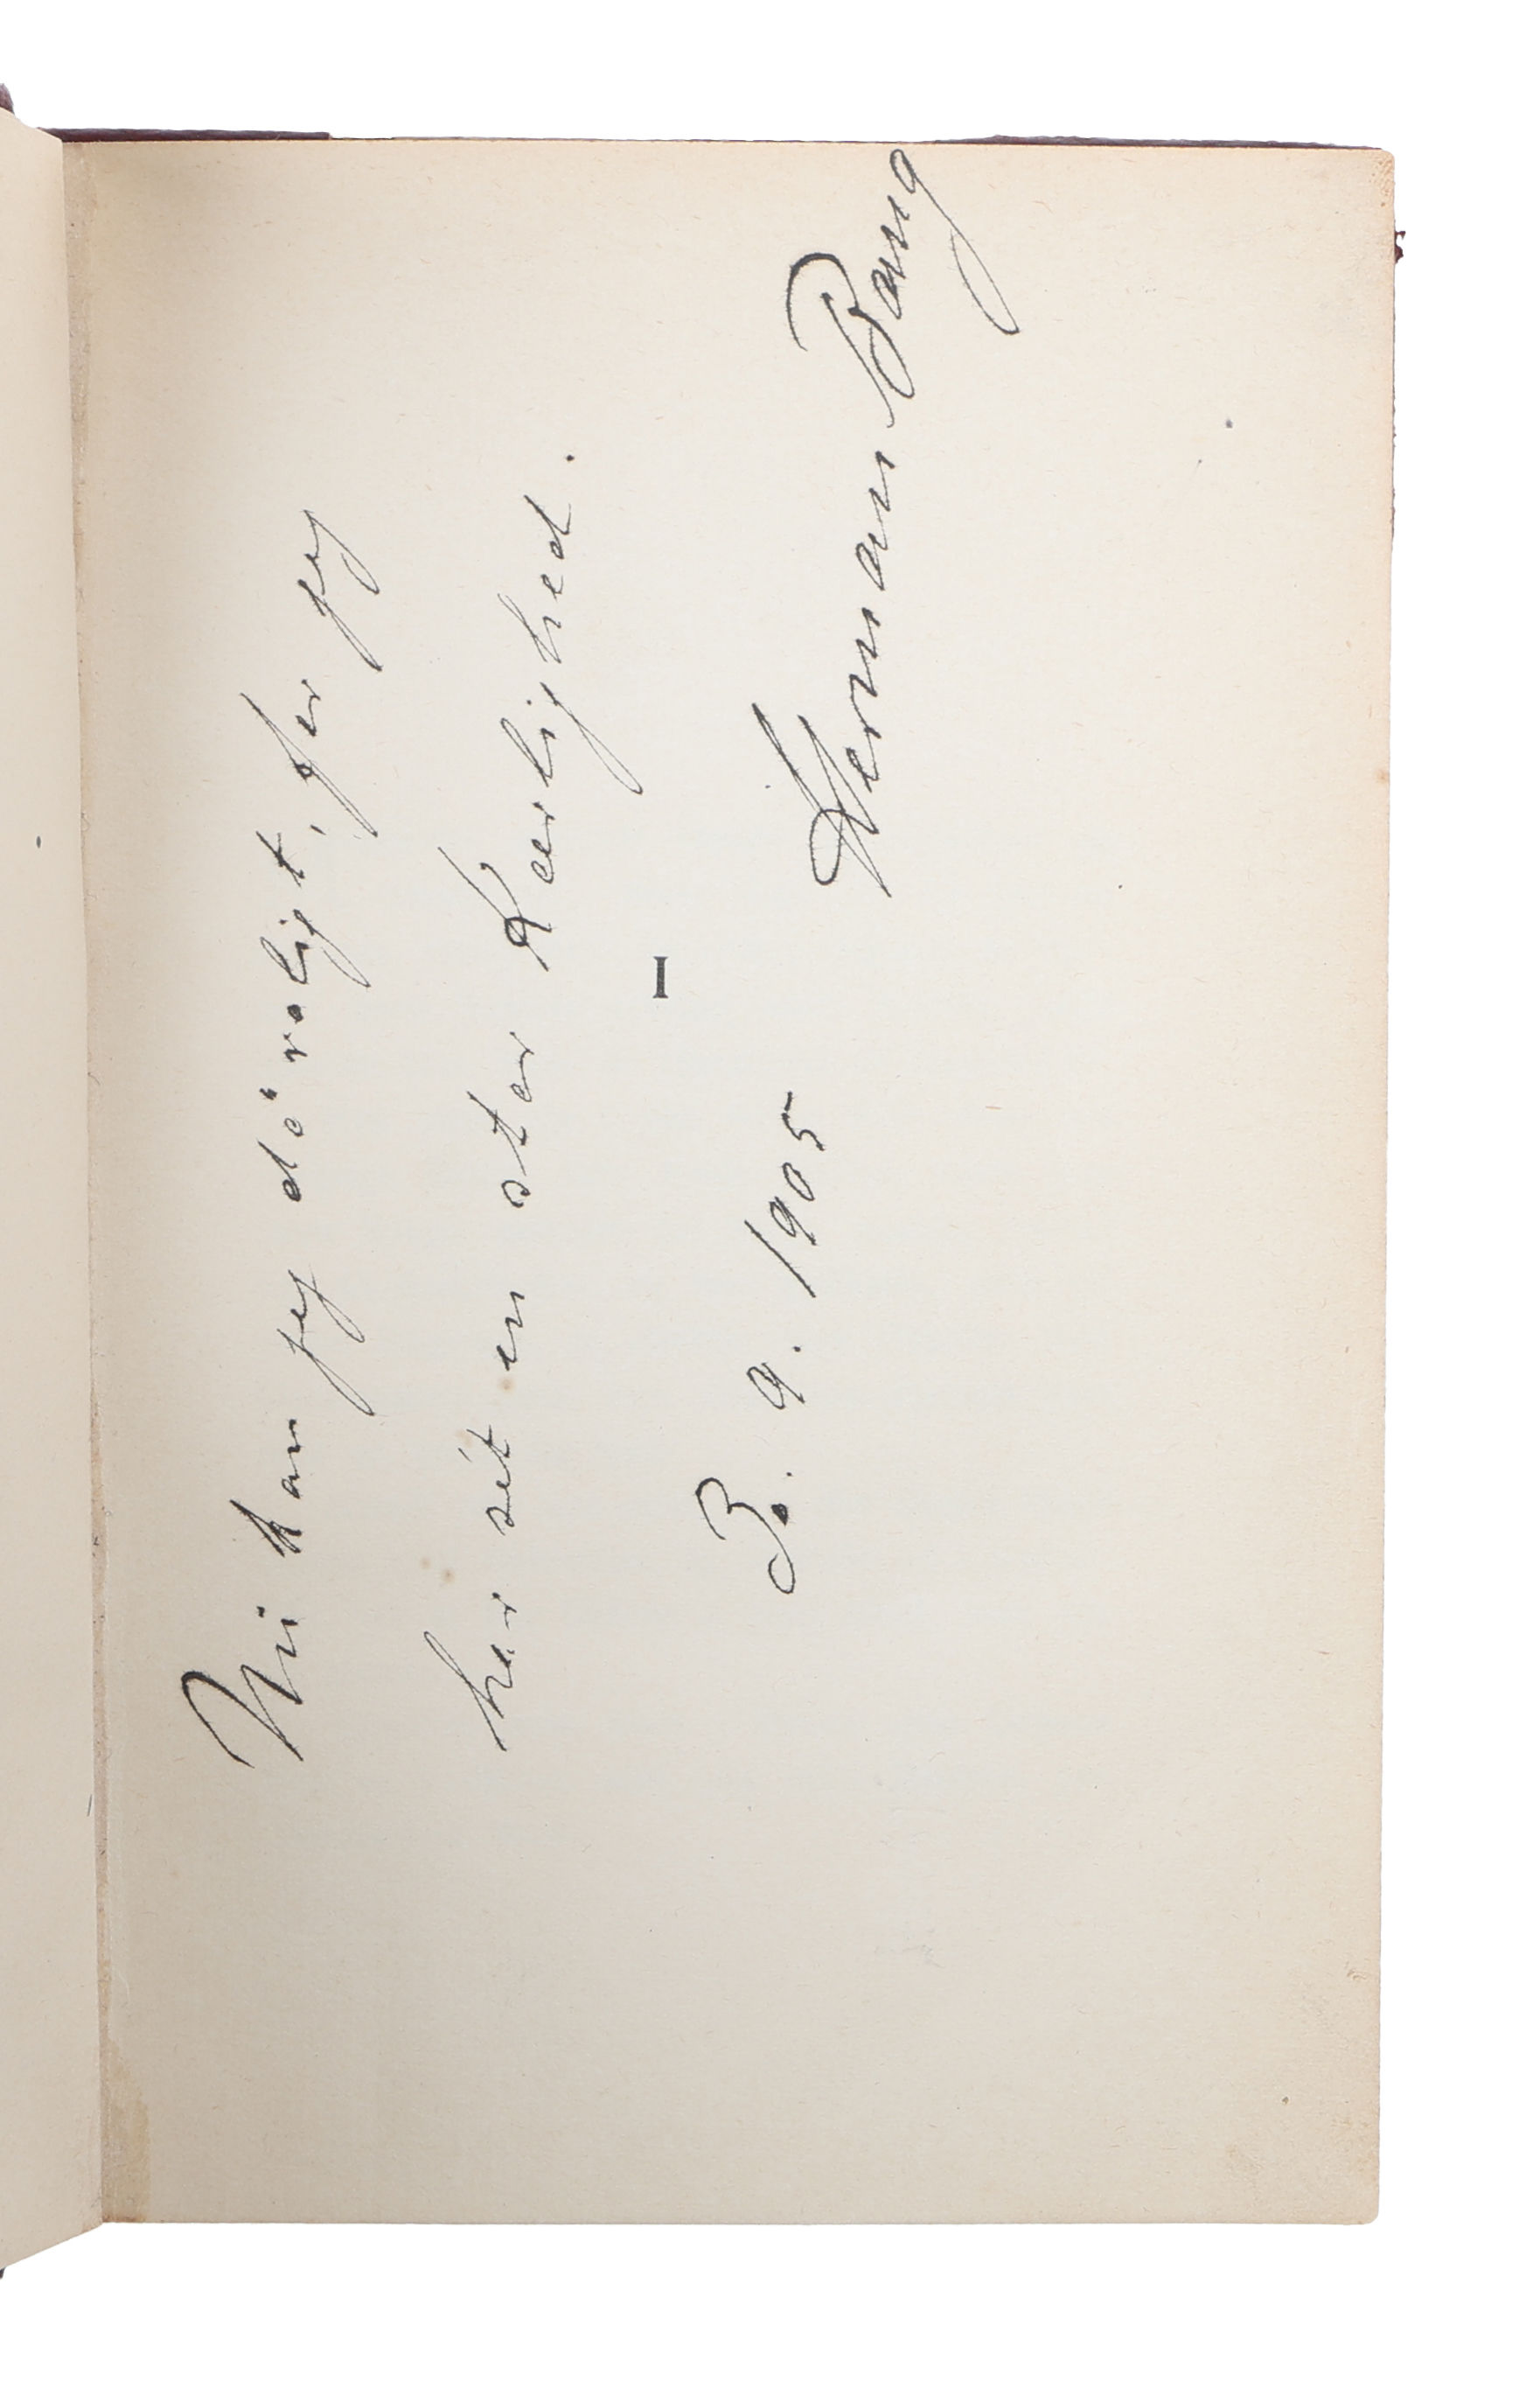 Nu kan jeg dö roligt, for jeg
har sét en stor Kærlighed.
I
30. 9. 1905 Herman Bang